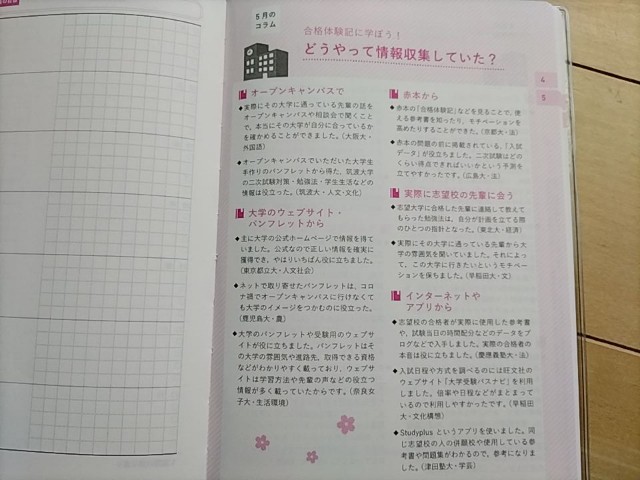 5月の
コラム
合格体験記に学ぼう！
どうやって情報収集していた？
オープンキャンパスで
◆実際にその大学に通っている先輩の話を
オープンキャンパスや相談会で聞くこと
で、本当にその大学が自分に合っているか
を確かめることができました。(大阪大・
外国語)
◆オープンキャンパスでいただいた大学生
手作りのパンフレットから得た、筑波大学
の二次試験対策・勉強法・学生生活などの
情報は役立った。(筑波大・人文・文化)
大学のウェブサイト・
パンフレットから
◆主に大学の公式ホームページで情報を得て
いました。公式なので正しい情報を確実に
獲得でき、やはりいちばん役に立ちました。
(東京都立大・人文社会)
◆ネットで取り寄せたパンフレットは、コロ
ナ禍でオープンキャンパスに行けなくて
も大学のイメージをつかむのに役立った。
(鹿児島大・農)
◆大学のパンフレットや受験用のウェブサ
イトが役に立ちました。パンフレットはそ
の大学の雰囲気や進路先、取得できる資格
などがわかりやすく載っており、ウェブサ
イトは学習方法や先輩の声などの役立つ
情報が多く載っていたからです。(奈良女
子大・生活環境)
赤本から
◆赤本の「合格体験記」などを見ることで、使
える参考書を知ったり、モチベーションを
高めたりすることができた。(京都大・法)
◆赤本の問題の前に掲載されている、「入試
データ」が役立ちました。二次試験はどの
くらい得点できればいいかという予測を
立てやすかったです。(広島大・法)
実際に志望校の先輩に会う
◆志望大学に合格した先輩に連絡して教えて
もらった勉強法は、自分が計画を立てる際
のひとつの指針となった。(東北大・経済)
◆実際にその大学に通っている先輩から大
学の雰囲気を聞いていました。それによっ
て、この大学に行きたいというモチベー
ションを保ちました。(早稲田大・文)
インターネットや
アプリから
◆志望校の合格者が実際に使用した参考書
や、試験当日の時間配分などのデータをブ
ログなどで入手しました。実際の合格者の
本音は役に立ちました。(慶應義塾大・法)
◆入試日程や方式を調べるのには旺文社の
ウェブサイト「大学受験パスナビ」を利用
しました。倍率や日程などがまとまって
いるので利用しやすかったです。(早稲田
大・文化構想)
◆Studyplusというアプリを使いました。同
じ志望校の人の併願校や使用している参
考書や問題集がわかるので、参考になりま
した。(津田塾大・学芸)
4
5